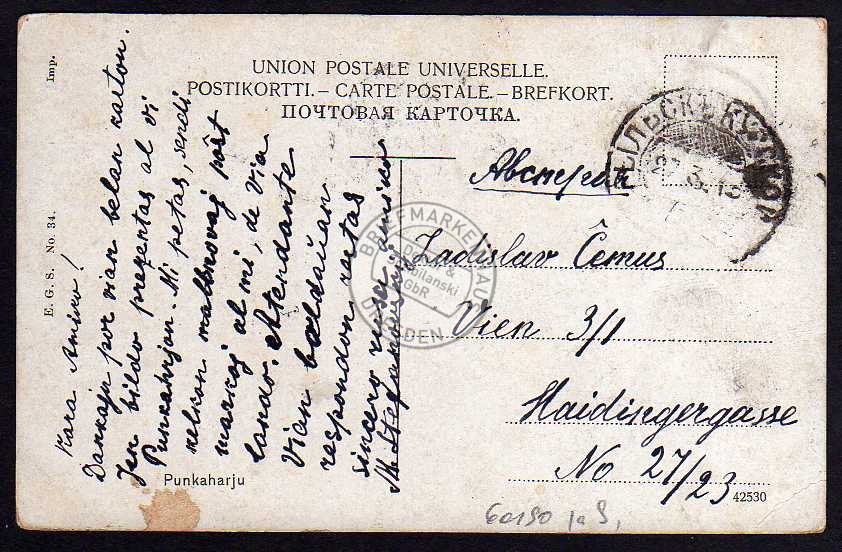 UNION POSTALE UNIVERSELLE.
POSTIKORTTI. – CARTE POSTALE. – BREFKORT.
ПОЧТОВАЯ КАРТОЧКА.
Imp.
E. G. S. No. 34.
Kara Amiko!
Dankaju por vian belan karton.
Jen bildo prezentas al vi
Punkaharjon. Mi petas, sendi
kelkan malnovaj poŝt
markoj al mi, de via
lando. Atendante
vian baldaŭan
respondon restas
sincero rusu amiko
Punkaharju
Австрия
Ladislav Čemus
Vien 3/1
Haidingergasse
No 27/23
42530
BRIEFMARKENHAUS
DRESDEN
& 
bilanski
GbR